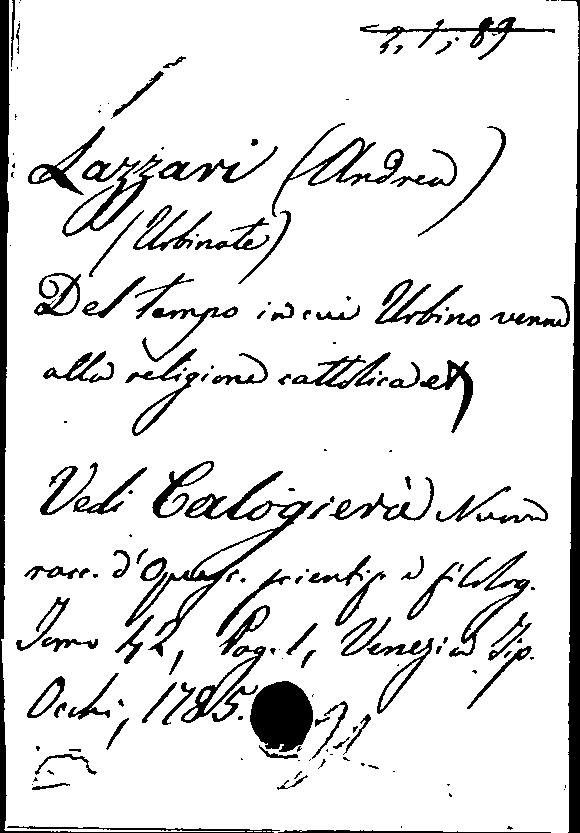 2, 1, 89
Lazzari (Andrea)
(Urbinate)
Del tempo in cui Urbino venne
alla religione cattolica
Vedi Calogierà Nuova
racc. d'Opusc. scientif. e filolog.
Tomo 42, Pag. 1, Venezia Tip.
Occhi, 1785.